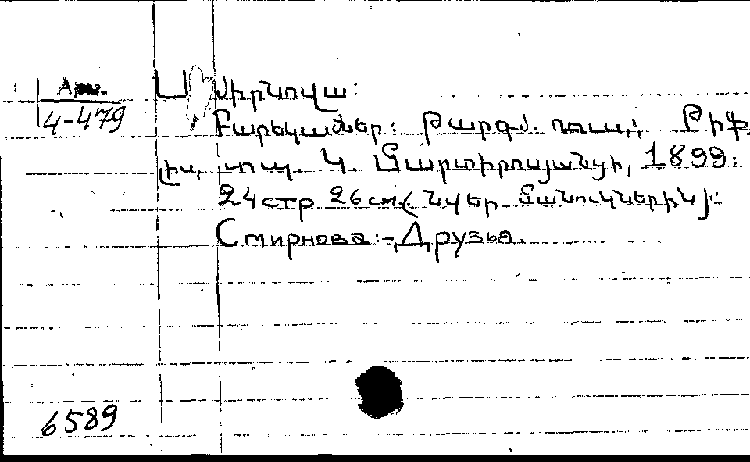 Арм.
4-479
Սմիրնովա:
Բարեկամներ: Թարգմ. ռուս.: Թիֆ-
լիս, տպ. Կ. Մարտիրոսյանցի, 1899:
24стр 26см (Նվեր մանուկներին):
Смирнова:-Друзья.
6589